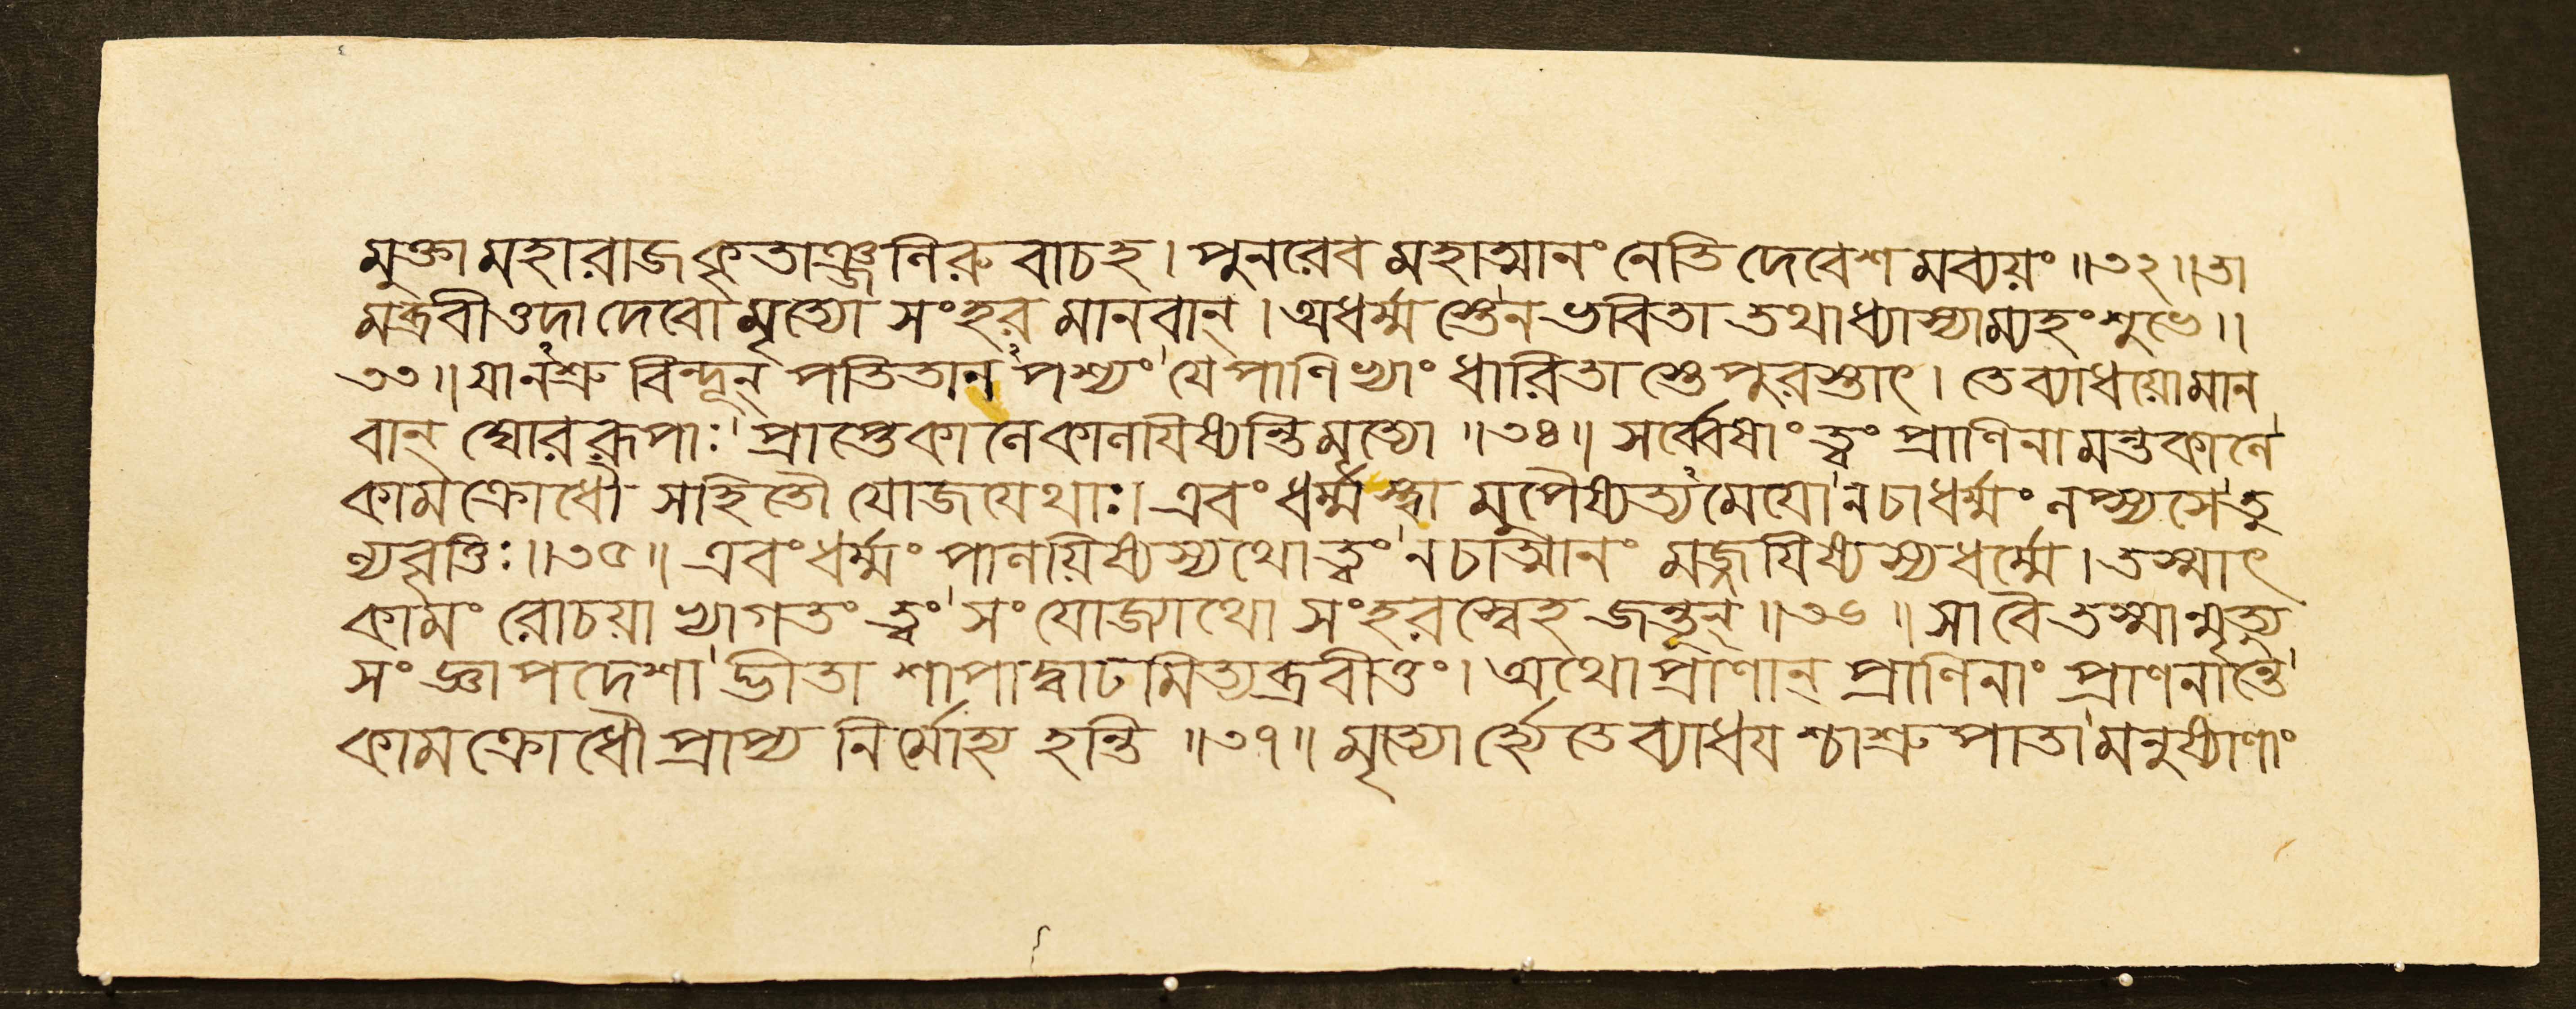 মুক্তা মহারাজ কৃতাঞ্জলিরু বাচহ। পুনরেব মহাত্মানং নেতি দেবেশ মব্যয়ং ॥৩২॥ তা
মব্রবীত্তদা দেবো মৃত্যো সংহর মানবান্। অধর্ম্ম স্তেন ভবিতা তথাধ্যাস্যাম্যহং শুভে॥
৩৩॥ যানশ্রু বিন্দূন্ পতিতান পশ্যং যে পাণিভ্যাং ধারিতা স্তে পুরস্তাৎ। তে ব্যাধয়ো মান
বান্ ঘোররূপাঃ প্রাপ্তে কালে কালযিষ্যন্তি মৃত্যো ॥৩৪॥ সর্ব্বেষাং ত্বং প্রাণিনা মন্তকালে
কামক্রোধৌ সহিতৌ যোজযেথাঃ। এবং ধর্ম্ম স্ত্বা মুপৈষ্যত্য মেযো নচাধর্ম্মং লপ্স্যসে তু
ল্যবৃত্তিঃ॥৩৫॥ এবং ধর্ম্মং পালয়িষ্যস্যথো ত্বং নচাত্মানং মজ্জযিষ্যস্যধর্ম্মে। তস্মাৎ
কামং রোচয়া ভ্যাগতং ত্বং সং যোজ্যাথো সংহরস্বেহ জন্তূন্ ॥৩৬॥ সা বৈ তস্মান্মৃত্যু
সং জ্ঞাপদেশা দ্ভীতা শাপাদ্বাঢমিত্যব্রবীত্তং। অথো প্রাণান্ প্রাণিনাং প্রাণনান্তে
কামক্রোধৌ প্রাপ্য নির্মোহ্য হন্তি ॥৩৭॥ মৃত্যো র্হ্যেতে ব্যাধয শ্চাশ্রু পাতা মনুষ্যাণাং